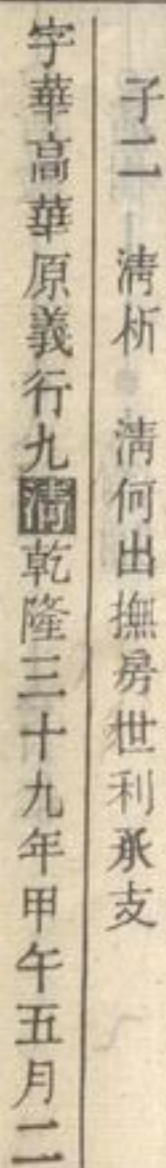 子二 清析 清何出撫房世利承支
字華高華原義行九清乾隆三十九年甲午五月二